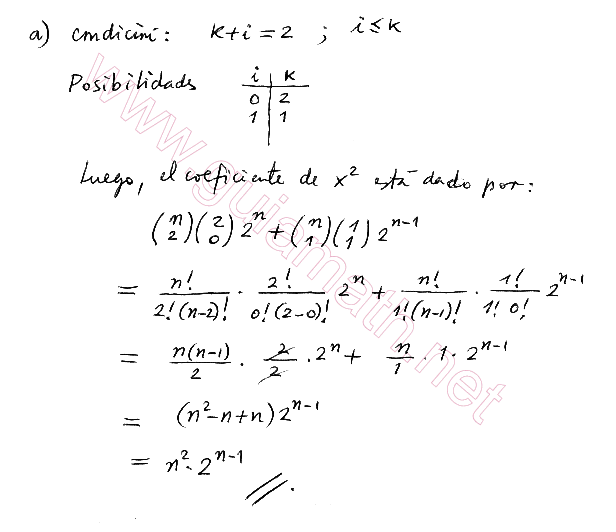 a) Condición: k+i=2 ; i≤k
Posibilidads
i | k
0 | 2
1 | 1
Luego, el coeficiente de x² está dado por:
(n 2)(2 0) 2^n + (n 1)(1 1) 2^{n-1}
= n!/(2!(n-2)!) · 2!/(0!(2-0)!) 2^n + n!/(1!(n-1)!) · 1!/(1! 0!) 2^{n-1}
= n(n-1)/2 · 2/2 · 2^n + n/1 · 1 · 2^{n-1}
= (n²-n+n) 2^{n-1}
= n² · 2^{n-1} //.
www.guiamath.net